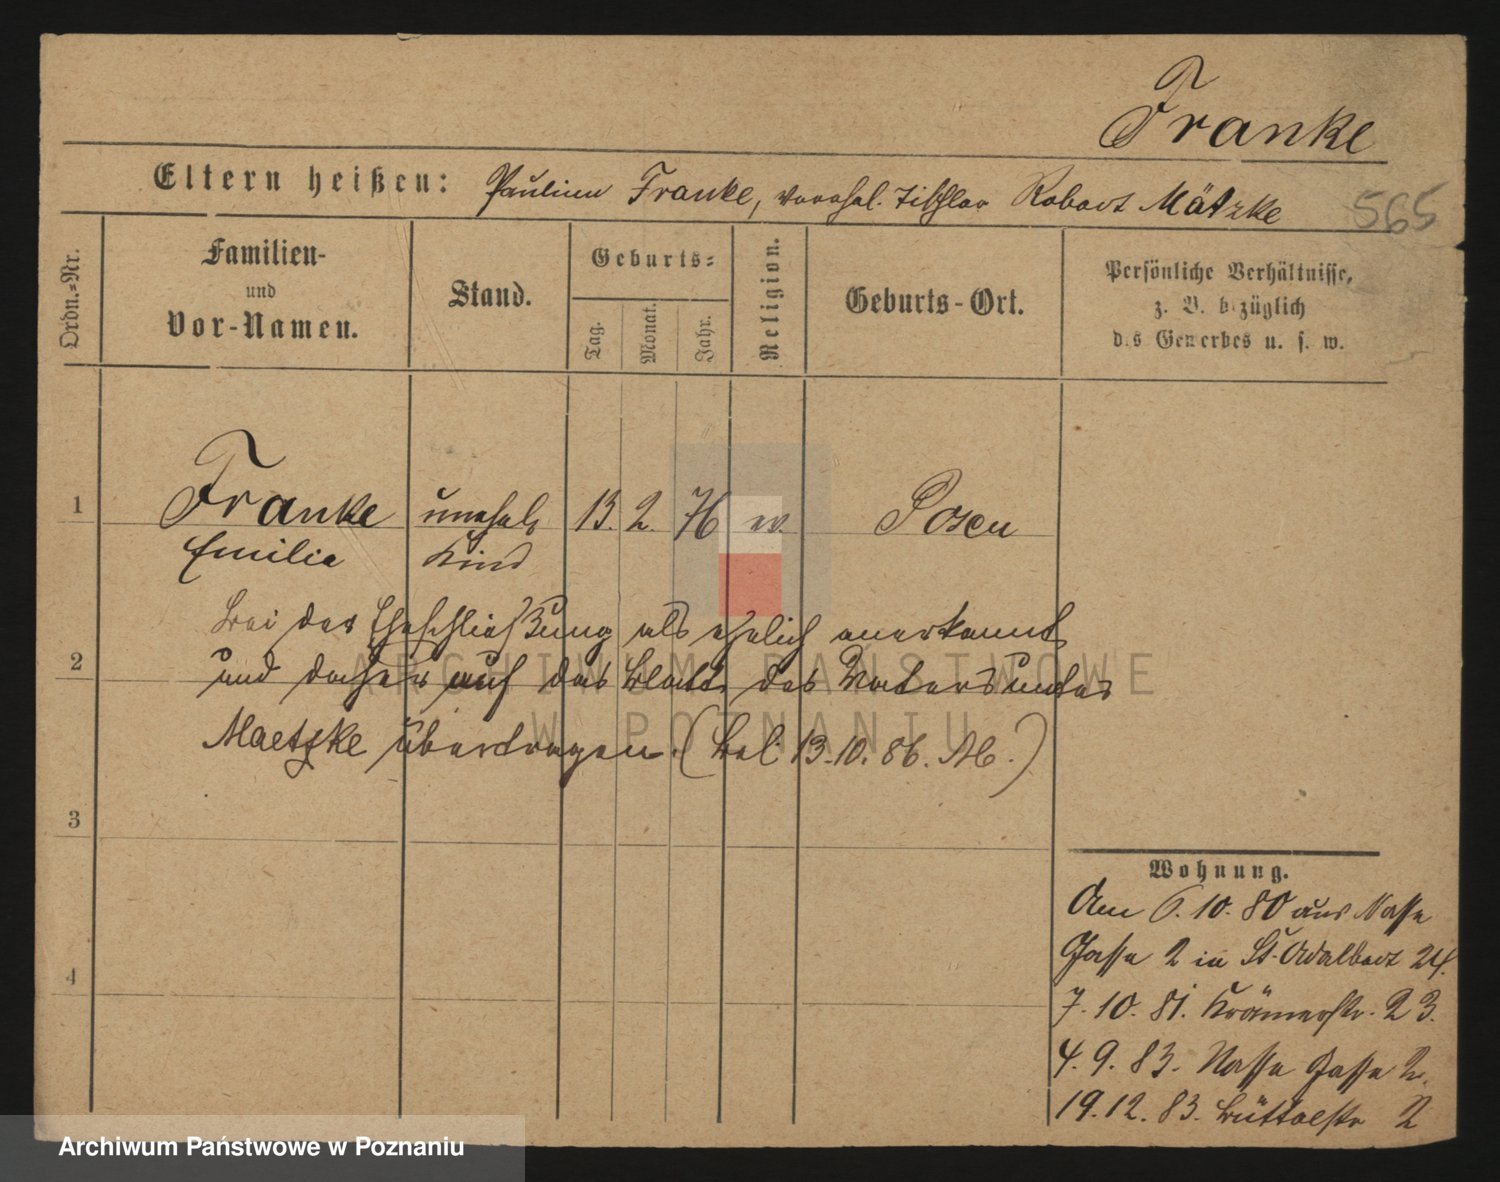 Franke
Eltern heißen: Pauline Franke, verehel. Tischler Robert Mätzke
565
Ordn.-Nr.
Familien-
und
Vor-Namen.
Stand.
Geburts-
Tag.
Monat.
Jahr.
Religion.
Geburts-Ort.
Persönliche Verhältnisse,
z. B. bezüglich
des Gewerbes u. s. w.
1
Franke unehel. 13. 2. 76 ev. Posen
Emilie Kind
Bei der Eheschließung als ehelich anerkannt
2
und daher auf das Blatt des Vaters unter
Maetzke übertragen. (Bel. 13.10.86. )
3
4
Wohnung.
Am 6. 10. 80 aus Nasse
Gasse 2 in St. Adalbert 24.
7. 10. 81. Krämerstr. 23.
4. 9. 83. Nasse Gasse 2.
19. 12. 83. Büttelstr 2
ARCHIWUM PAŃSTWOWE
W POZNANIU
Archiwum Państwowe w Poznaniu